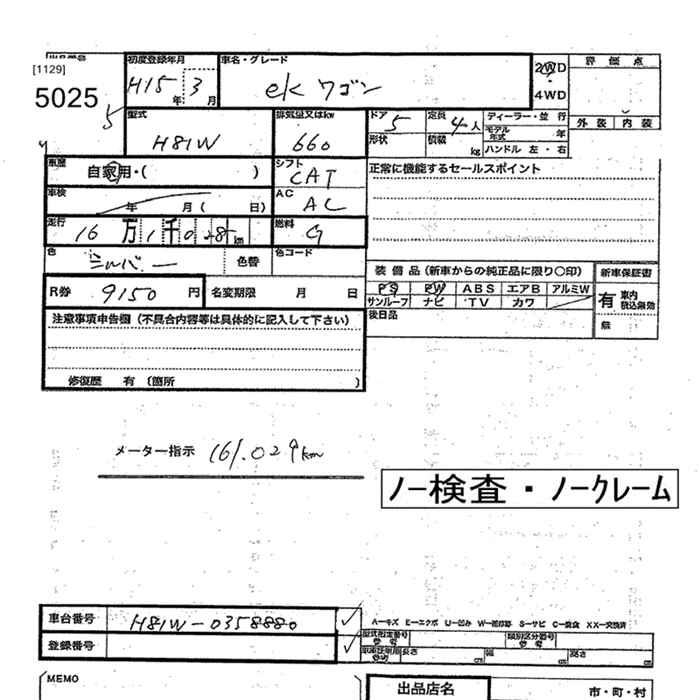 [1129]
5025
5
初度登録年月
H15年 3月
車名・グレード
ekワゴン
2WD
4WD
評価点
外装 内装
型式
H81W
排気量又はkw
660
ドア 5
定員 4人
形状
積載 kg
ディーラー・並行
モデル年式 年
ハンドル 左・右
車歴
自家用・( )
シフト
CAT
正常に機能するセールスポイント
車検
年 月( 日)
AC
AC
走行
16万1千0 km
燃料
G
色
シルバー
色替
色コード
R券 9150円
名変期限 月 日
装備品(新車からの純正品に限り○印)
PS PW ABS エアB アルミW
サンルーフ ナビ TV カワ
新車保証書
有 車内積込無効
無
後日品
注意事項申告欄(不具合内容等は具体的に記入して下さい)
修復歴 有 〔箇所 〕
メーター指示 161.029km
ノー検査・ノークレーム
車台番号 H81W-0358880
登録番号
A―キズ E―エクボ U―凹み S―サビ C―腐食 XX―交換済
型式指定番号 参考
類別区分番号 参考
長さ cm 幅 cm 高さ cm
MEMO
出品店名
市・町・村